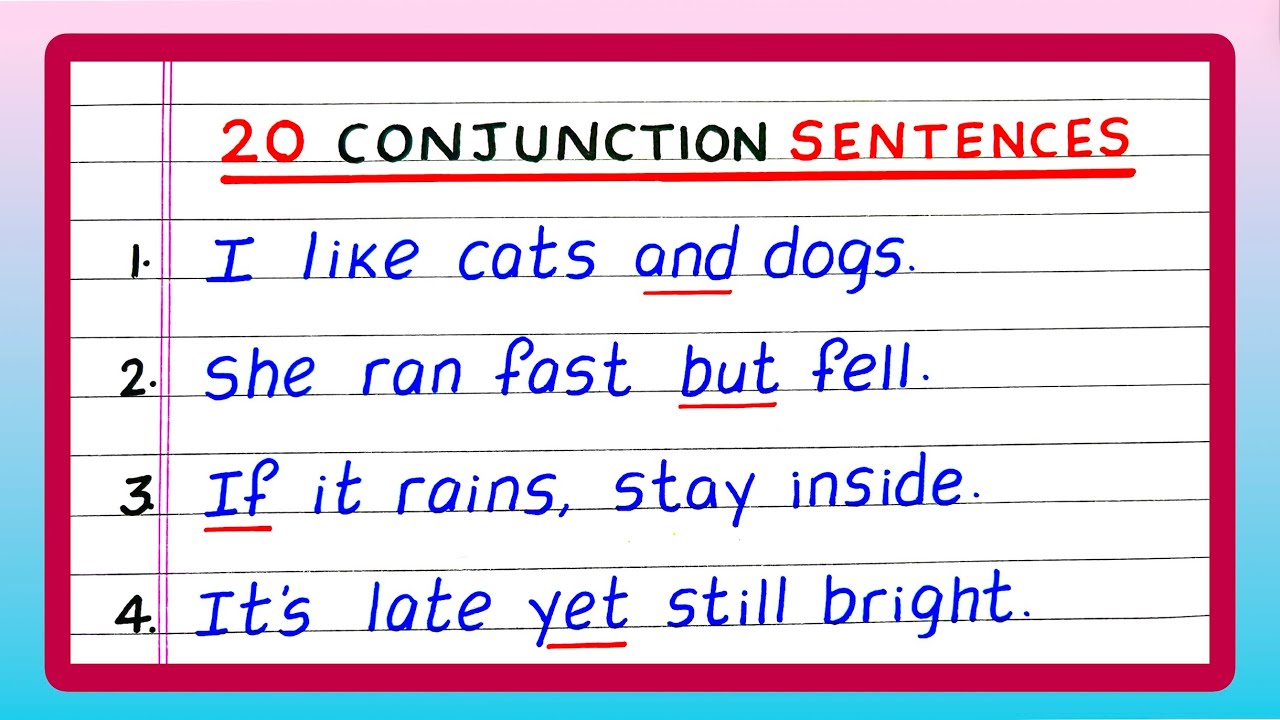 20 CONJUNCTION SENTENCES
1. I like cats and dogs.
2. She ran fast but fell.
3. If it rains, stay inside.
4. It's late yet still bright.